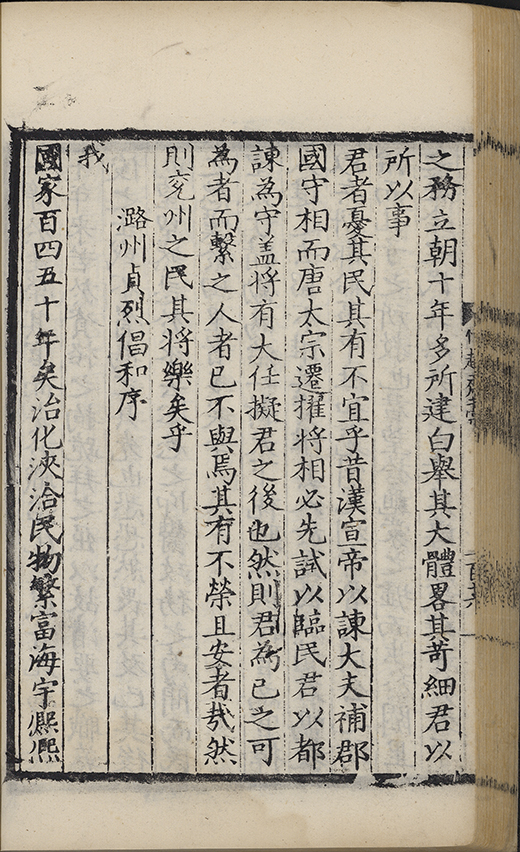 之務立朝十年多所建白舉其大體畧其苛細君以
所以事
君者憂其民其有不宜乎昔漢宣帝以諫大夫補郡
國守相而唐太宗遷擢將相必先試以臨民君以都
諫為守盖將有大任擬君之後也然則君為已之可
為者而繫之人者已不與焉其有不榮且安者㢤然
則兖州之民其將樂矣乎
潞州貞烈倡和序
我
國家百四五十年矣治化浹洽民物繁富海宇熈熈